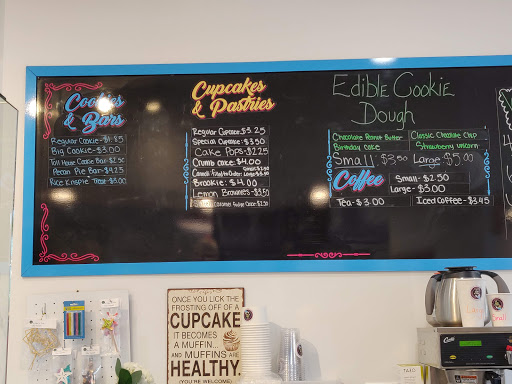 Cookies
& Bars
Regular Cookie-$1.85
Big Cookie-$3.00
Toll House Cookie Bar-$2.50
Pecan Pie Bar-$4.25
Rice Krispie Treat-$3.00
Cupcakes
& Pastries
Regular Cupcake-$3.25
Special Cupcake-$3.50
Cake Pops-$2.25
Crumb Cake-$4.00
Cannoli Filled to Order:
Brookie-$4.00
Lemon Brownies-$3.50
Edible Cookie
Dough
Chocolate Peanut Butter
Classic Chocolate Chip
Birthday cake
Strawberry unicorn
Small $3.50 Large-$5.00
Coffee
Small-$2.50
Large-$3.00
Tea-$3.00
Iced Coffee-$3.45
ONCE YOU LICK THE
FROSTING OFF OF A
CUPCAKE
IT BECOMES
A MUFFIN...
AND MUFFINS ARE
HEALTHY.
(YOU'RE WELCOME)